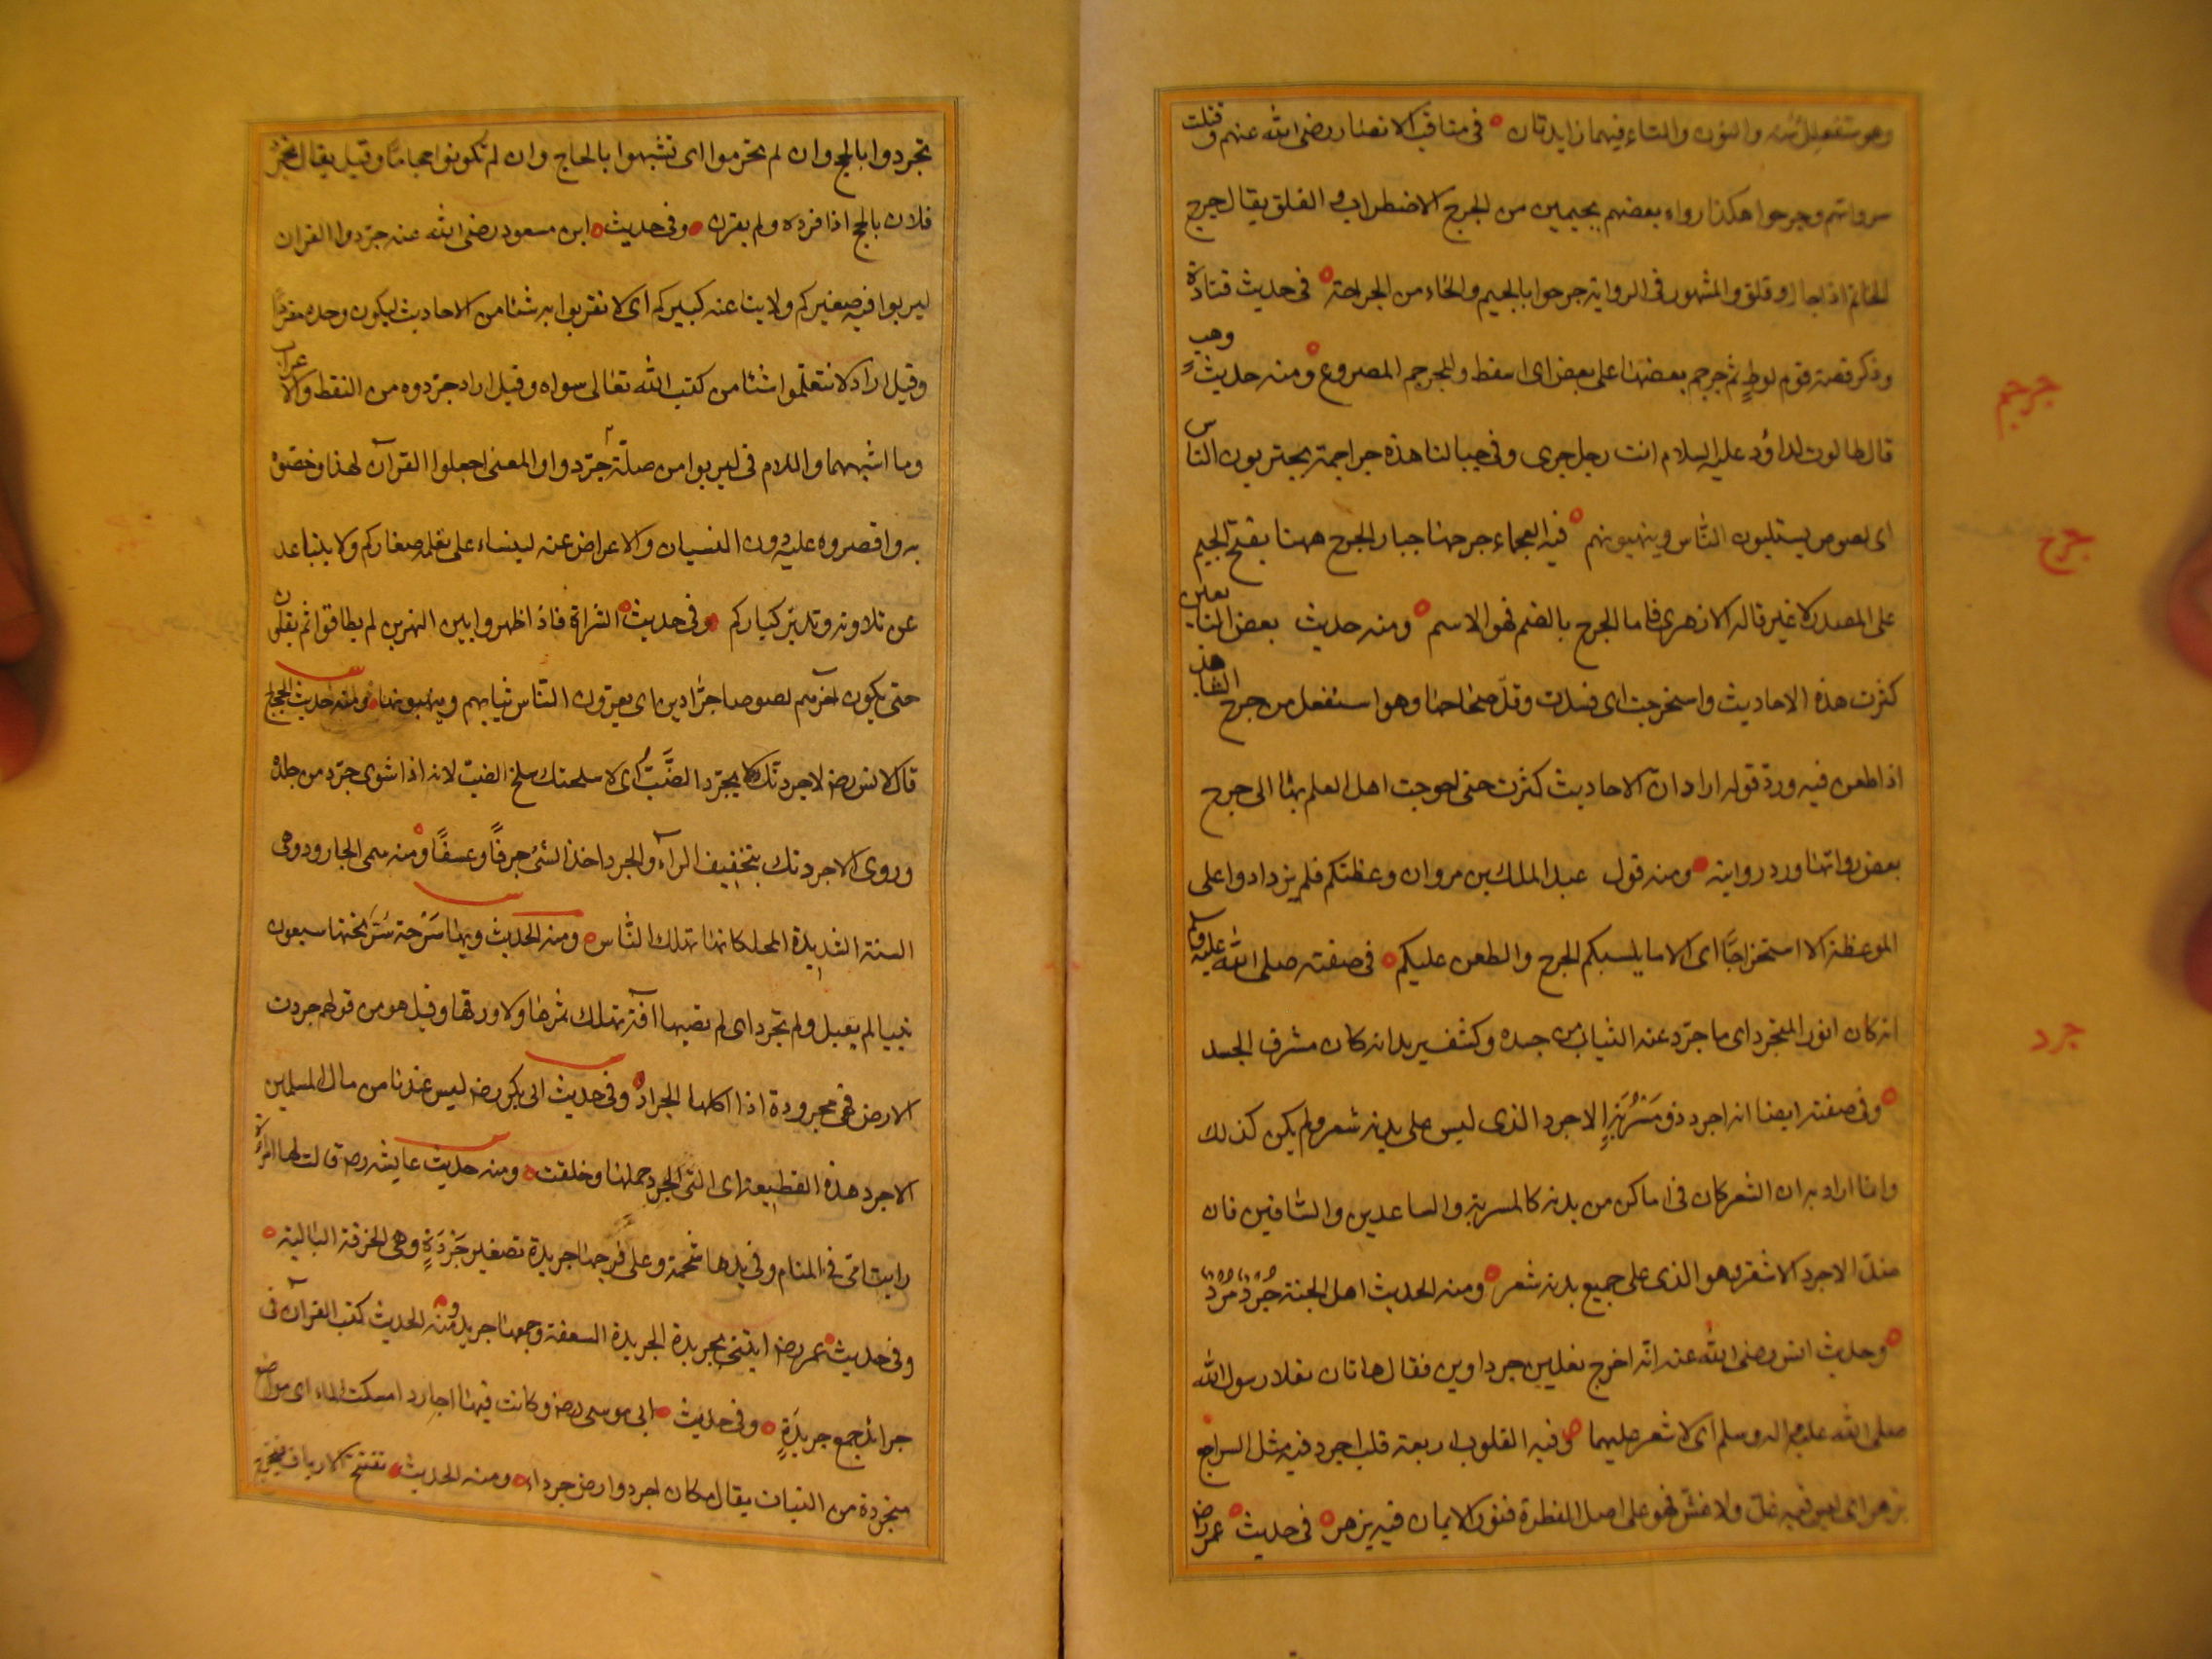 وهو مستفعل منه والنون والتاء فيهما زايدتان في مناقب الانصار رضي الله عنهم وقتلت
سرواتهم وجرجوا هكذا رواه بعضهم بجيمين من الجرج الاضطراب والقلق يقال جرج
الخاتم اذا جال وقلق والمشهور في الرواية جرحوا بالجيم والحاء من الجراحة في حديث قتادة
وذكر قصة قوم لوط ثم جرجم بعضها على بعض اى اسقط والمجرجم المصروع ومنه حديث وهب
جرجم
قال طالوت لداؤد عليه السلام انت رجل جرى وفي جبالنا هذه جراجمة يحتربون الناس
اى لصوص يستلبون الناس وينهبونهم فيه العجماء جرحها جبار الجرح ههنا بفتح الجيم
جرح
على المصدر لا غير قاله الازهرى فاما الجرح بالضم فهو الاسم ومنه حديث بعض التابعين
كثرت هذه الاحاديث واستجرحت اى فسدت وقل صحاحها وهو استفعل من جرح الشاهد
اذا طعن فيه ورد قوله اراد ان الاحاديث كثرت حتى احوجت اهل العلم بها الى جرح
بعض رواتها ورد روايته ومنه قول عبد الملك بن مروان وعظتكم فلم يزدادوا على
الموعظة الا استجراحا اى الا ما يكسبكم الجرح والطعن عليكم في صفته صلى الله عليه وسلم
انه كان انور المتجرد اى ما جرد عنه الثياب من جسده وكشف يريد انه كان مشرق الجسد
جرد
وفي صفته ايضا انه اجرد ذو مسربة الاجرد الذى ليس على بدنه شعر ولم يكن كذلك
وانما اراد به ان الشعر كان في اماكن من بدنه كالمسربة والساعدين والساقين فان
ضد الاجرد الاشعر وهو الذى على جميع بدنه شعر ومنه الحديث اهل الجنة جرد مرد
وحديث انس رضى الله عنه انه اخرج نعلين جرداوين فقال هاتان نعلا رسول الله
صلى الله عليه واله وسلم اى لا شعر عليهما وفيه القلوب اربعة قلب اجرد فيه مثل السراج
يزهر اى ليس فيه غل ولا غش فهو على اصل الفطرة فنور الايمان فيه يزهر في حديث عمر رض
تجردوا بالحج وان لم تحرموا اى تشبهوا بالحاج وان لم تكونوا حجاجا وقيل يقال تجرد
فلان بالحج اذا افرده ولم يقرن وفي حديث ابن مسعود رضى الله عنه جردوا القران
ليربوا فيه صغيركم ولا يناى عنه كبيركم اى لا تقربوا به شئا من الاحاديث ليكون وحده مفردا
وقيل اراد لا تتعلموا شئا من كتب الله تعالى سواه وقيل اراد جردوه من النقط والاعراب
وما اشبههما واللام في ليربوا من صلة جردوا والمعنى اجعلوا القرآن لهذا وخصوه
به واقصروه عليه دون النسيان والاعراض عنه لينشاء على تعلمه صغاركم ولا يتباعد
عن تلاوته وتدبره كباركم وفي حديث الشراة فاذا ظهروا بين النهرين لم يطاقوا ثم يقلون
حتى يكون آخرهم لصوصا جرادين اى يعرون الناس ثيابهم وينهبونها ومنه حديث الحجاج
قال لانس رض لاجردنك كما يجرد الضب اى لاسلخنك سلخ الضب لانه اذا شوى جرد من جلده
وروى لاجردنك بتخفيف الرآء والجرد اخذ الشئ جرفا وعسفا ومنه سمى الجارود وهى
السنة الشديدة المحل كانها تهلك الناس ومنه الحديث وبها سرحة سر تحتها سبعون
نبيا لم يعبل ولم تجرد اى لم تصبها آفة تهلك ثمرها ولا ورقها وقيل هو من قولهم جردت
الارض فهى مجرودة اذا اكلها الجراد وفي حديث ابى بكر رض ليس عندنا من مال المسلمين
الا جرد هذه القطيفة اى التى انجرد خملها وخلقت ومنه حديث عايشه رض قالت لها امرأة
رايت امى في المنام وفي يدها شحمة وعلى فرجها جريدة تصغير جردة وهى الخرقة البالية
وفي حديث عمر رض ايتنى بجريدة الجريدة السعفة وجمعها جريد ومنه الحديث كتب القرآن في
جرائد جمع جريدة وفي حديث ابى موسى رض وكانت فيها اجارد امسكت الماء اى مواضع
منجردة من النبات يقال مكان اجرد وارض جرداء ومنه الحديث تفتح الارياف فيخرج